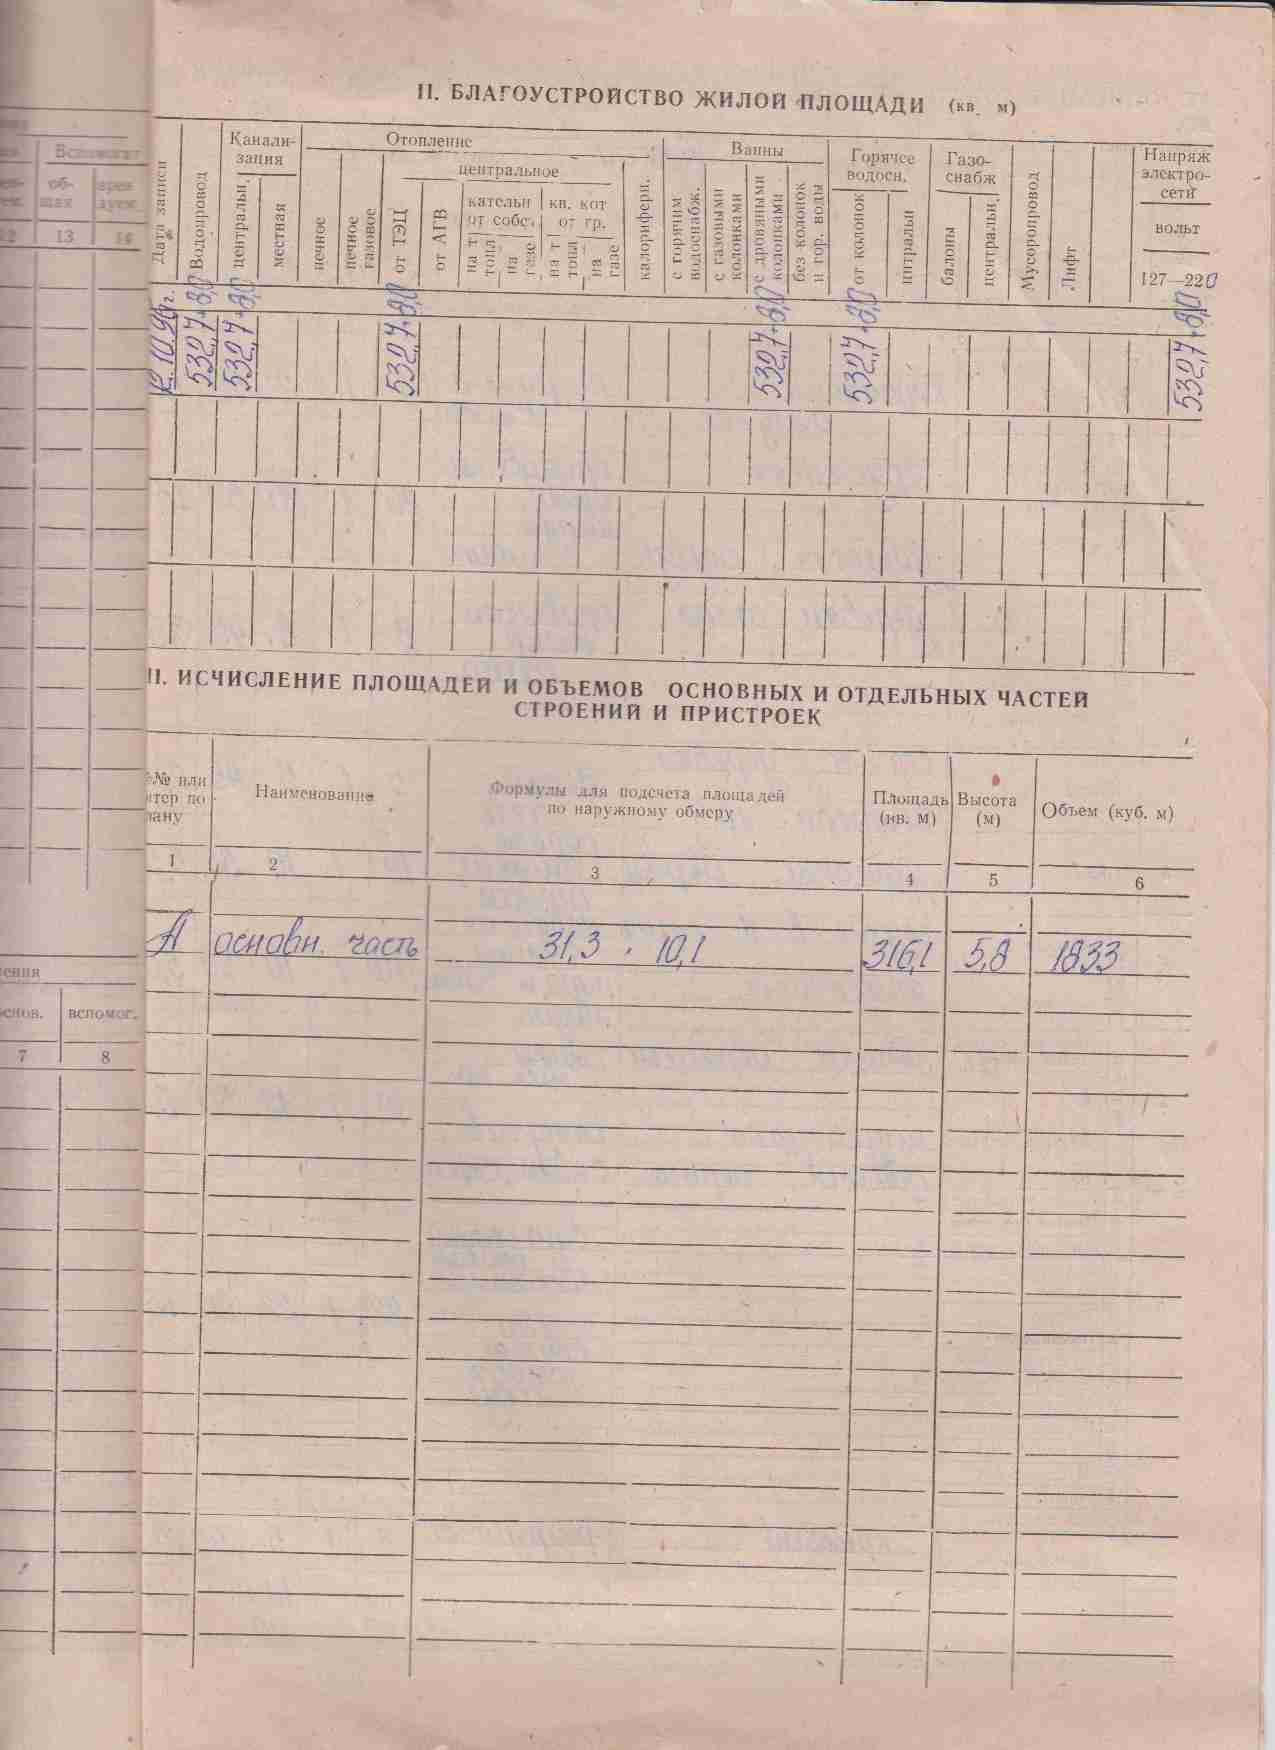 II. БЛАГОУСТРОЙСТВО ЖИЛОЙ ПЛОЩАДИ (кв. м)
Дата записи
Водопровод
Канали-
зация
центральн.
местная
Отопление
печное
печное
газовое
центральное
от ТЭЦ
от АГВ
кательн
от собс.
на т
топл
на
газе
кв. кот
от гр.
на т
топл
на
газе
калорифери.
Ванны
с горячим
водоснабж.
с газовыми
колонками
с дровяными
колонками
без колонок
и гор. воды
Горячее
водосн.
от колонок
цнтральн
Газо-
снабж
балоны
центральн.
Мусоропровод
Лифт
Напряж
электро-
сети
вольт
127—220
12.10.96г.
532,7+8,0
532,7+8,0
532,7+8,0
532,7+8,0
532,7+8,0
532,7+8,0
II. ИСЧИСЛЕНИЕ ПЛОЩАДЕЙ И ОБЪЕМОВ ОСНОВНЫХ И ОТДЕЛЬНЫХ ЧАСТЕЙ
СТРОЕНИЙ И ПРИСТРОЕК
№№ или
итер по
лану
Наименование
Формулы для подсчета площадей
по наружному обмеру
Площадь
(кв. м)
Высота
(м)
Объем (куб. м)
1 2 3 4 5 6
А основн. часть 31,3 · 10,1 316,1 5,8 1833
Вспомогат
об-
щая
врен
дуем
12 13 14
ения
снов. вспомог.
7 8